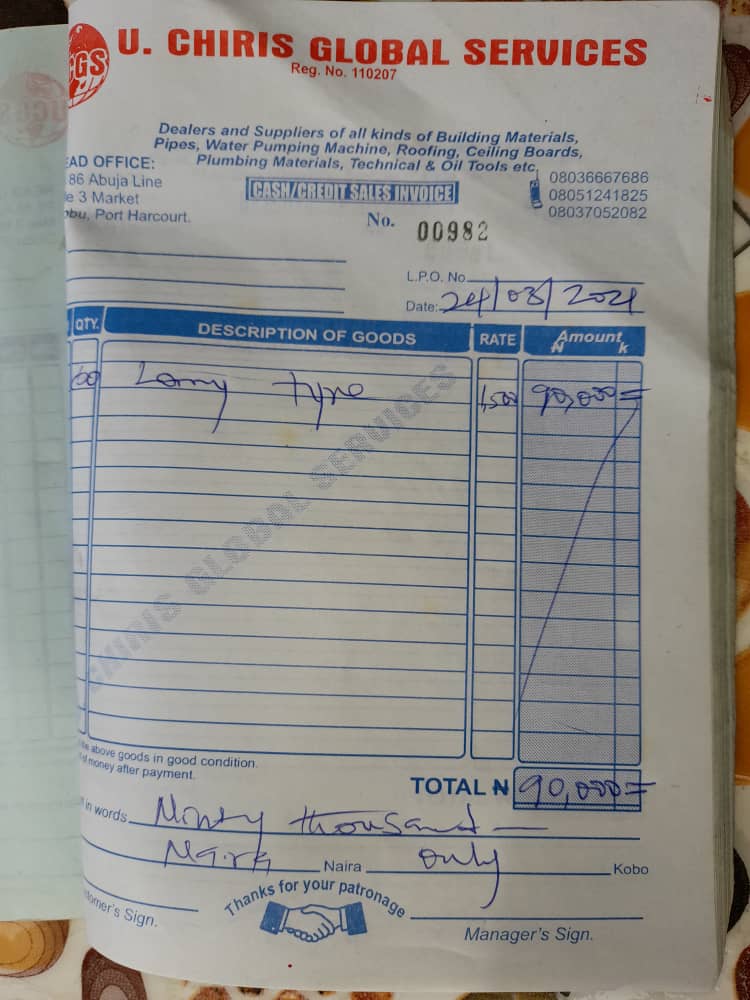 UCGS
CGS
U. CHIRIS GLOBAL SERVICES
Reg. No. 110207
Dealers and Suppliers of all kinds of Building Materials,
Pipes, Water Pumping Machine, Roofing, Ceiling Boards,
Plumbing Materials, Technical & Oil Tools etc
EAD OFFICE:
86 Abuja Line
e 3 Market
bu, Port Harcourt.
CASH/CREDIT SALES INVOICE
08036667686
08051241825
08037052082
No. 00982
L.P.O. No
Date: 24/03/2021
QTY. DESCRIPTION OF GOODS RATE Amount
₦ K
60 Lorry tyre 1,500 90,000=
CHIRIS GLOBAL SERVICES
the above goods in good condition.
of money after payment.
TOTAL ₦ 90,000=
in words Ninty thousand
Naira Naira only Kobo
Thanks for your patronage
tomer's Sign.
Manager's Sign.